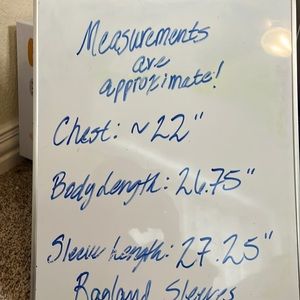 Measurements
are
approximate!
Chest: ~22"
Body Length: 26.75"
Sleeve Length: 27.25"
Ragland Sleeves